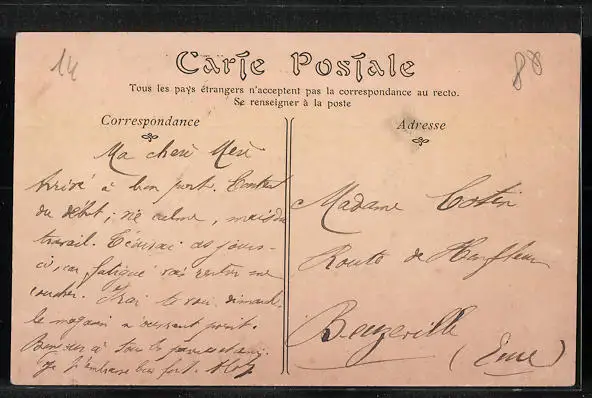 14
88
Carte Postale
Tous les pays étrangers n'acceptent pas la correspondance au recto.
Se renseigner à la poste
Correspondance
Ma chère Mère
Arrivé à bon port. Content
du début ; vie calme, mais du
travail. Écrirai ces jours-
ci, car fatigué vais rentrer me
coucher. Irai te voir dimanche
le magasin n'ouvrant point.
à tous les
Je t'embrasse bien fort.
Adresse
Madame Cotin
Route de Honfleur
Beuzeville
(Eure)